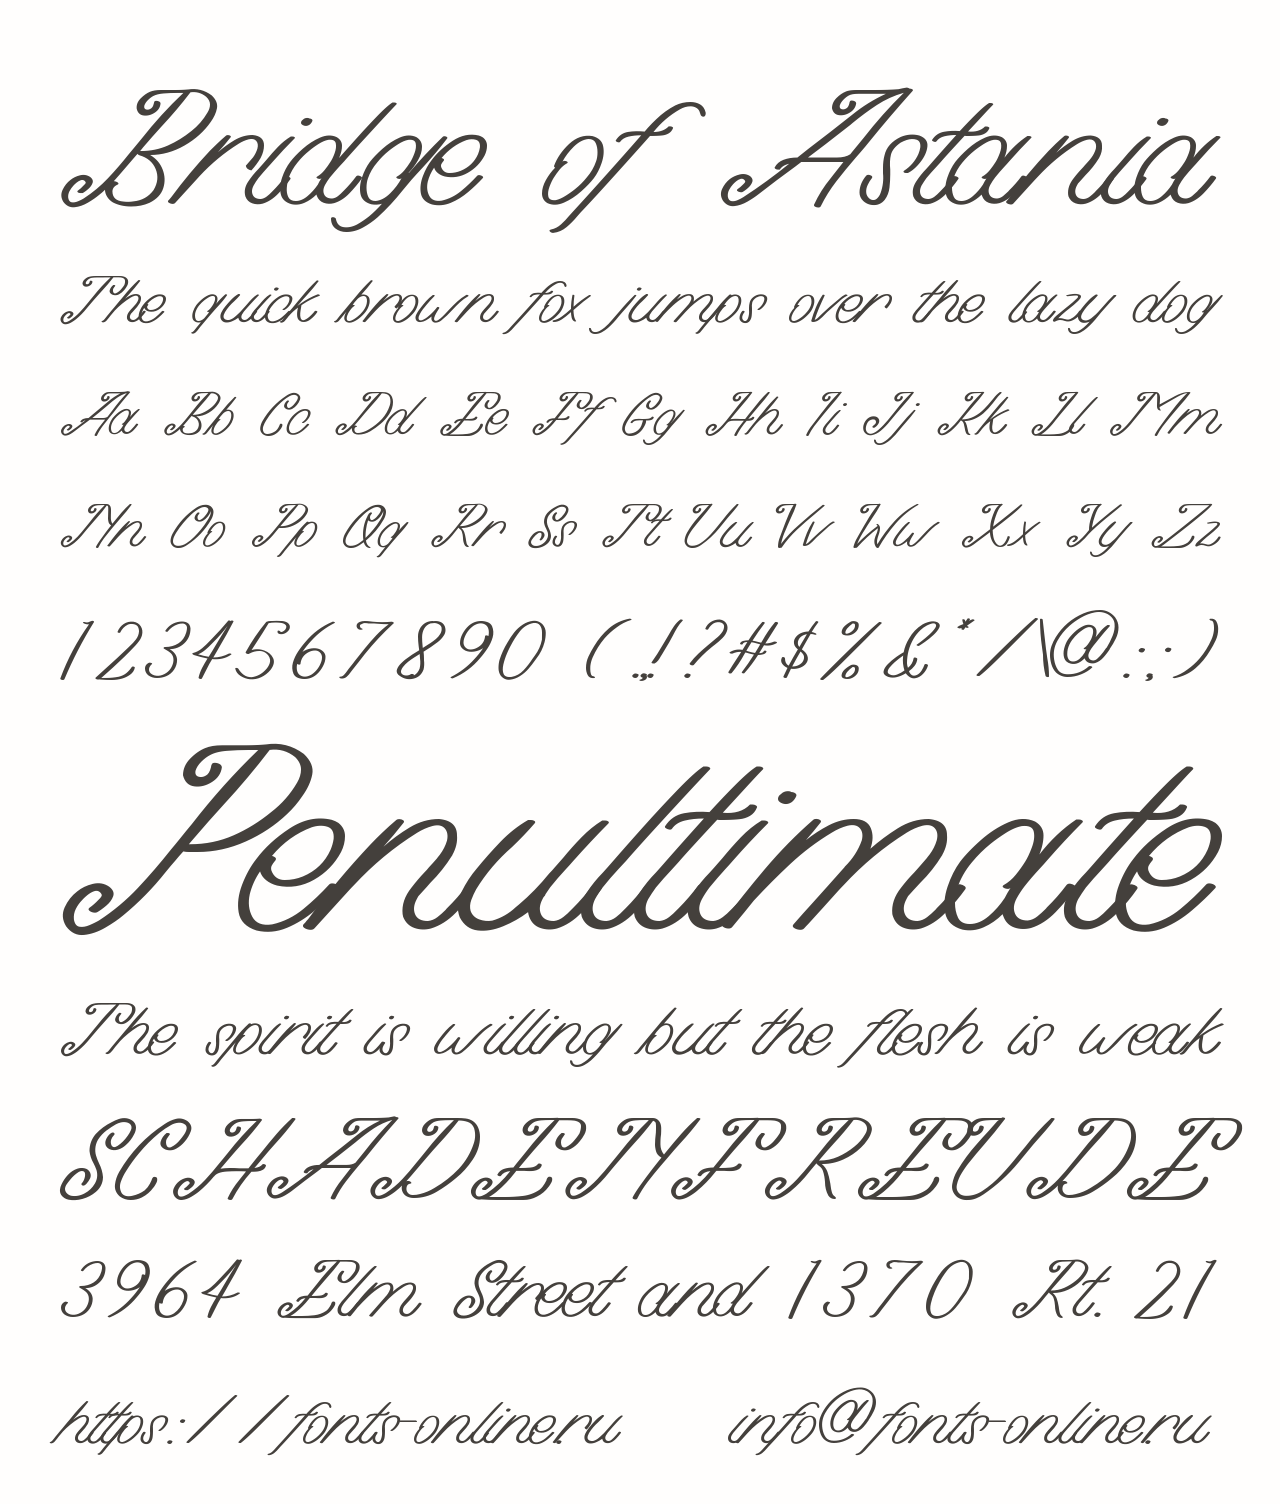 Bridge of Astania
The quick brown fox jumps over the lazy dog
Aa Bb Cc Dd Ee Ff Gg Hh Ii Jj Kk Ll Mm
Nn Oo Pp Qq Rr Ss Tt Uu Vv Ww Xx Yy Zz
1234567890 (.,!?#$%&*/\@:;)
Penultimate
The spirit is willing but the flesh is weak
SCHADENFREUDE
3964 Elm Street and 1370 Rt. 21
https://fonts-online.ru info@fonts-online.ru